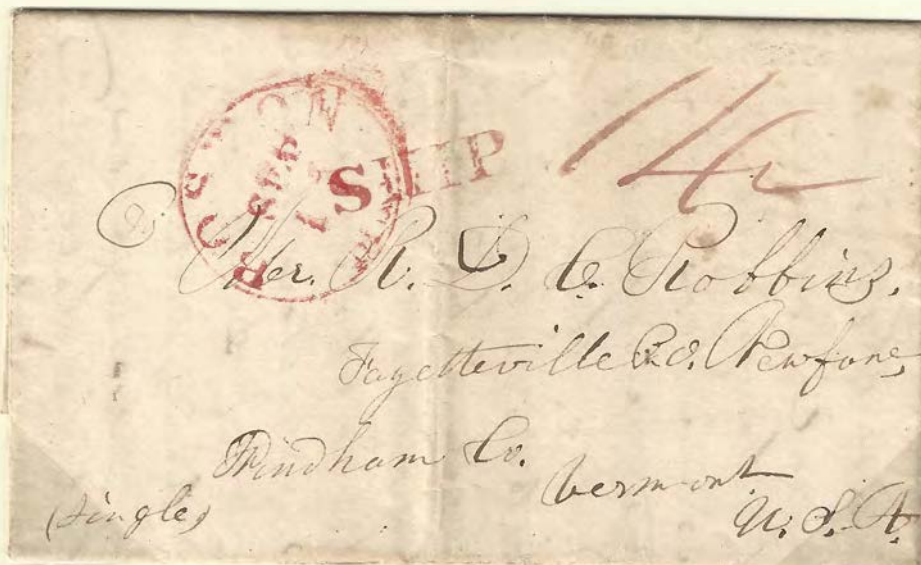 BOSTON
SEP
1
MS.
SHIP
14
Mr. R. D. C. Robbins,
Fayetteville P.O. Newfane,
Windham Co.
Vermont
U.S.A.
(Single)